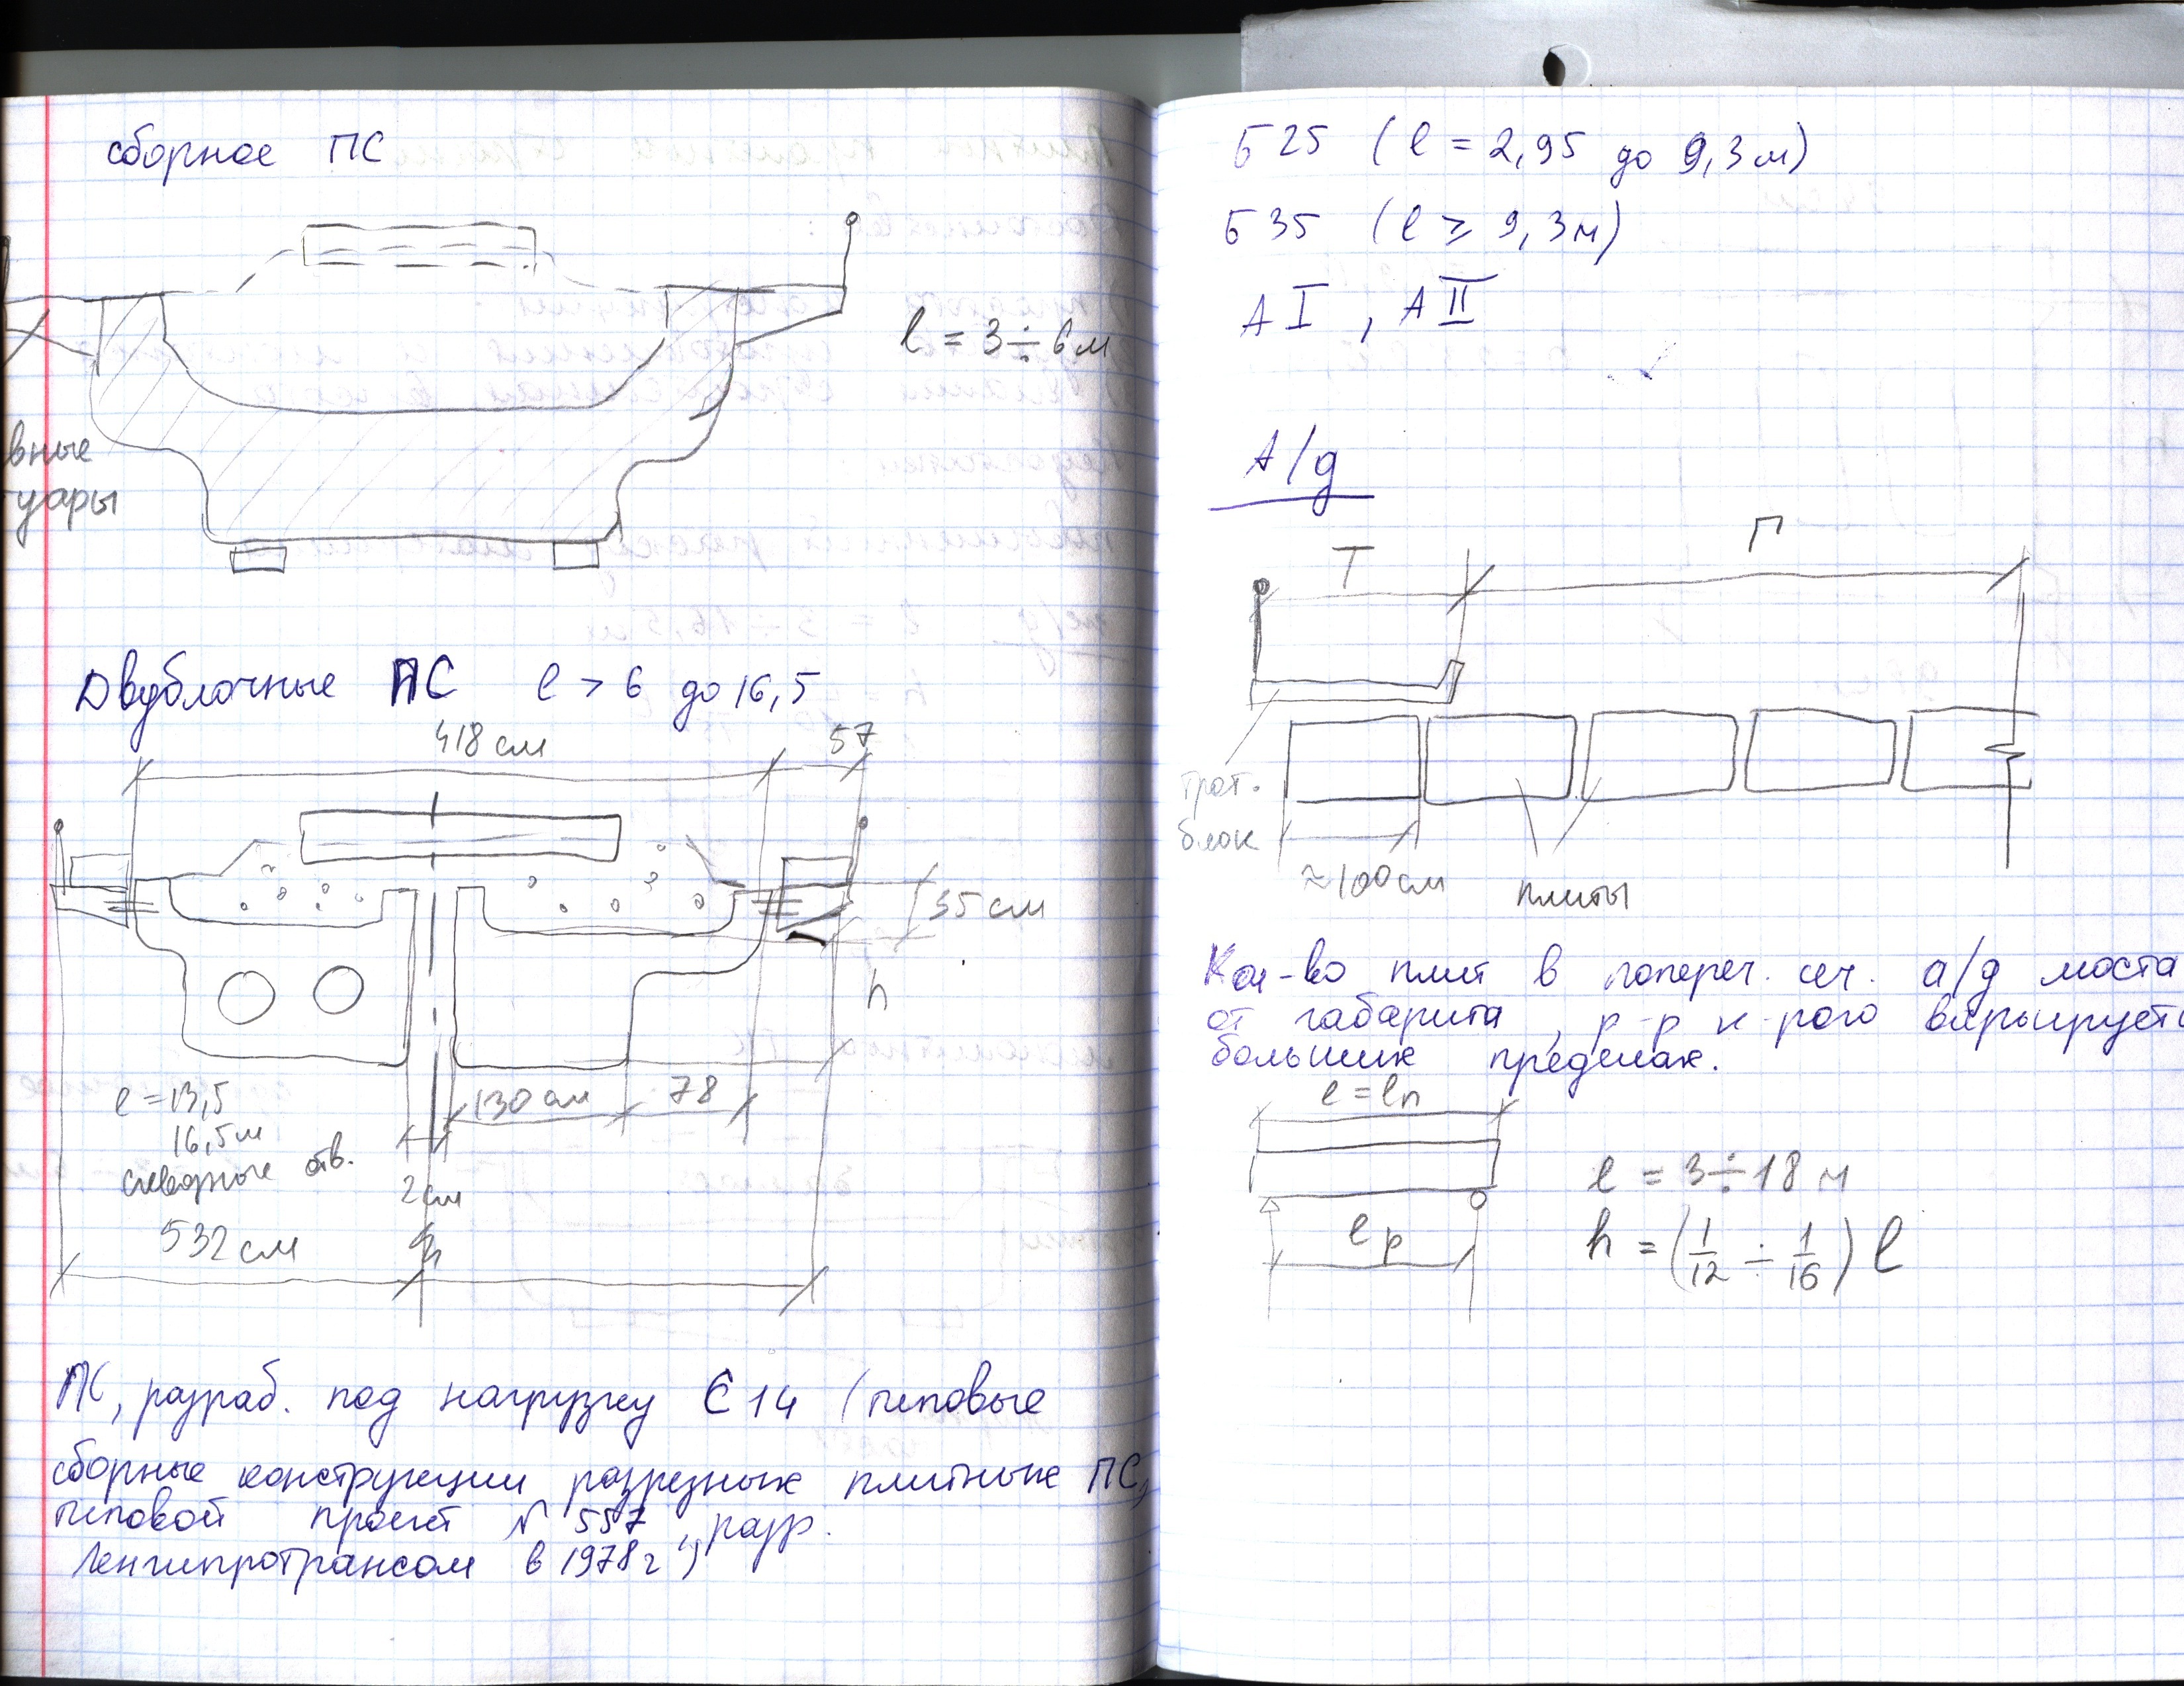 сборное ПС
l = 3 ÷ 6 м
вные
уары
Двублочные ПС l > 6 до 16,5
418 см
57
35 см
h
130 см
78
l = 13,5
16,5 м
отв.
2 см
532 см
ПС, разраб. под нагрузку С 14 (типовые
сборные конструкции разрезных плитных ПС,
типовой проект № 557, разр.
Ленгипротрансом в 1978 г.)
Б 25 (l = 2,95 до 9,3 м)
Б 35 (l ≥ 9,3 м)
А I , А II
А/д
Т
Г
трот.
блок
≈100 см
плиты
Кол-во плит в попереч. сеч. а/д моста
от габарита, р-р к-рого варьирует
больших пределах.
l = lп
lр
l = 3 ÷ 18 м
h = (1/12 ÷ 1/16) l